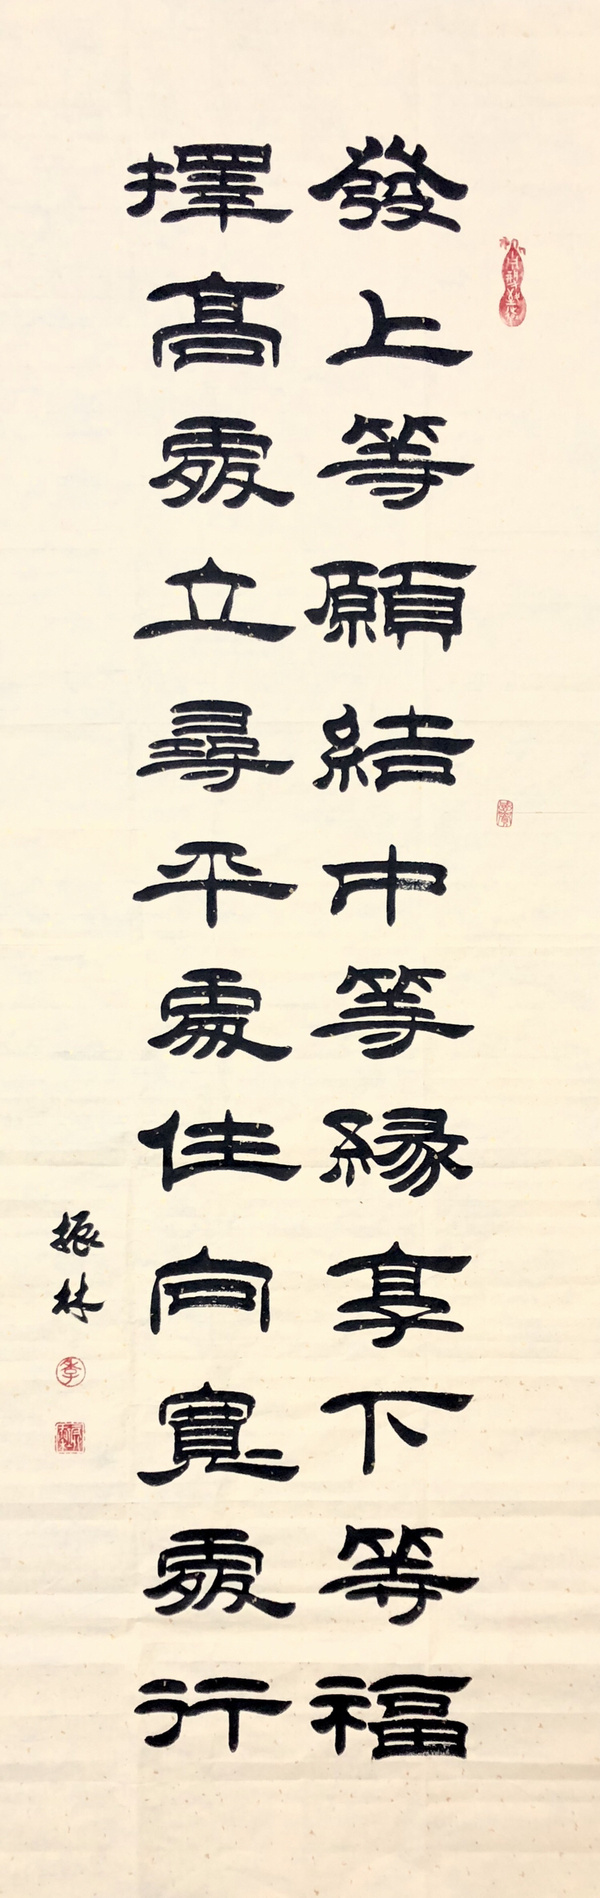 發上等願結中等緣享下等福
擇高處立尋平處住向寬處行
振林
李